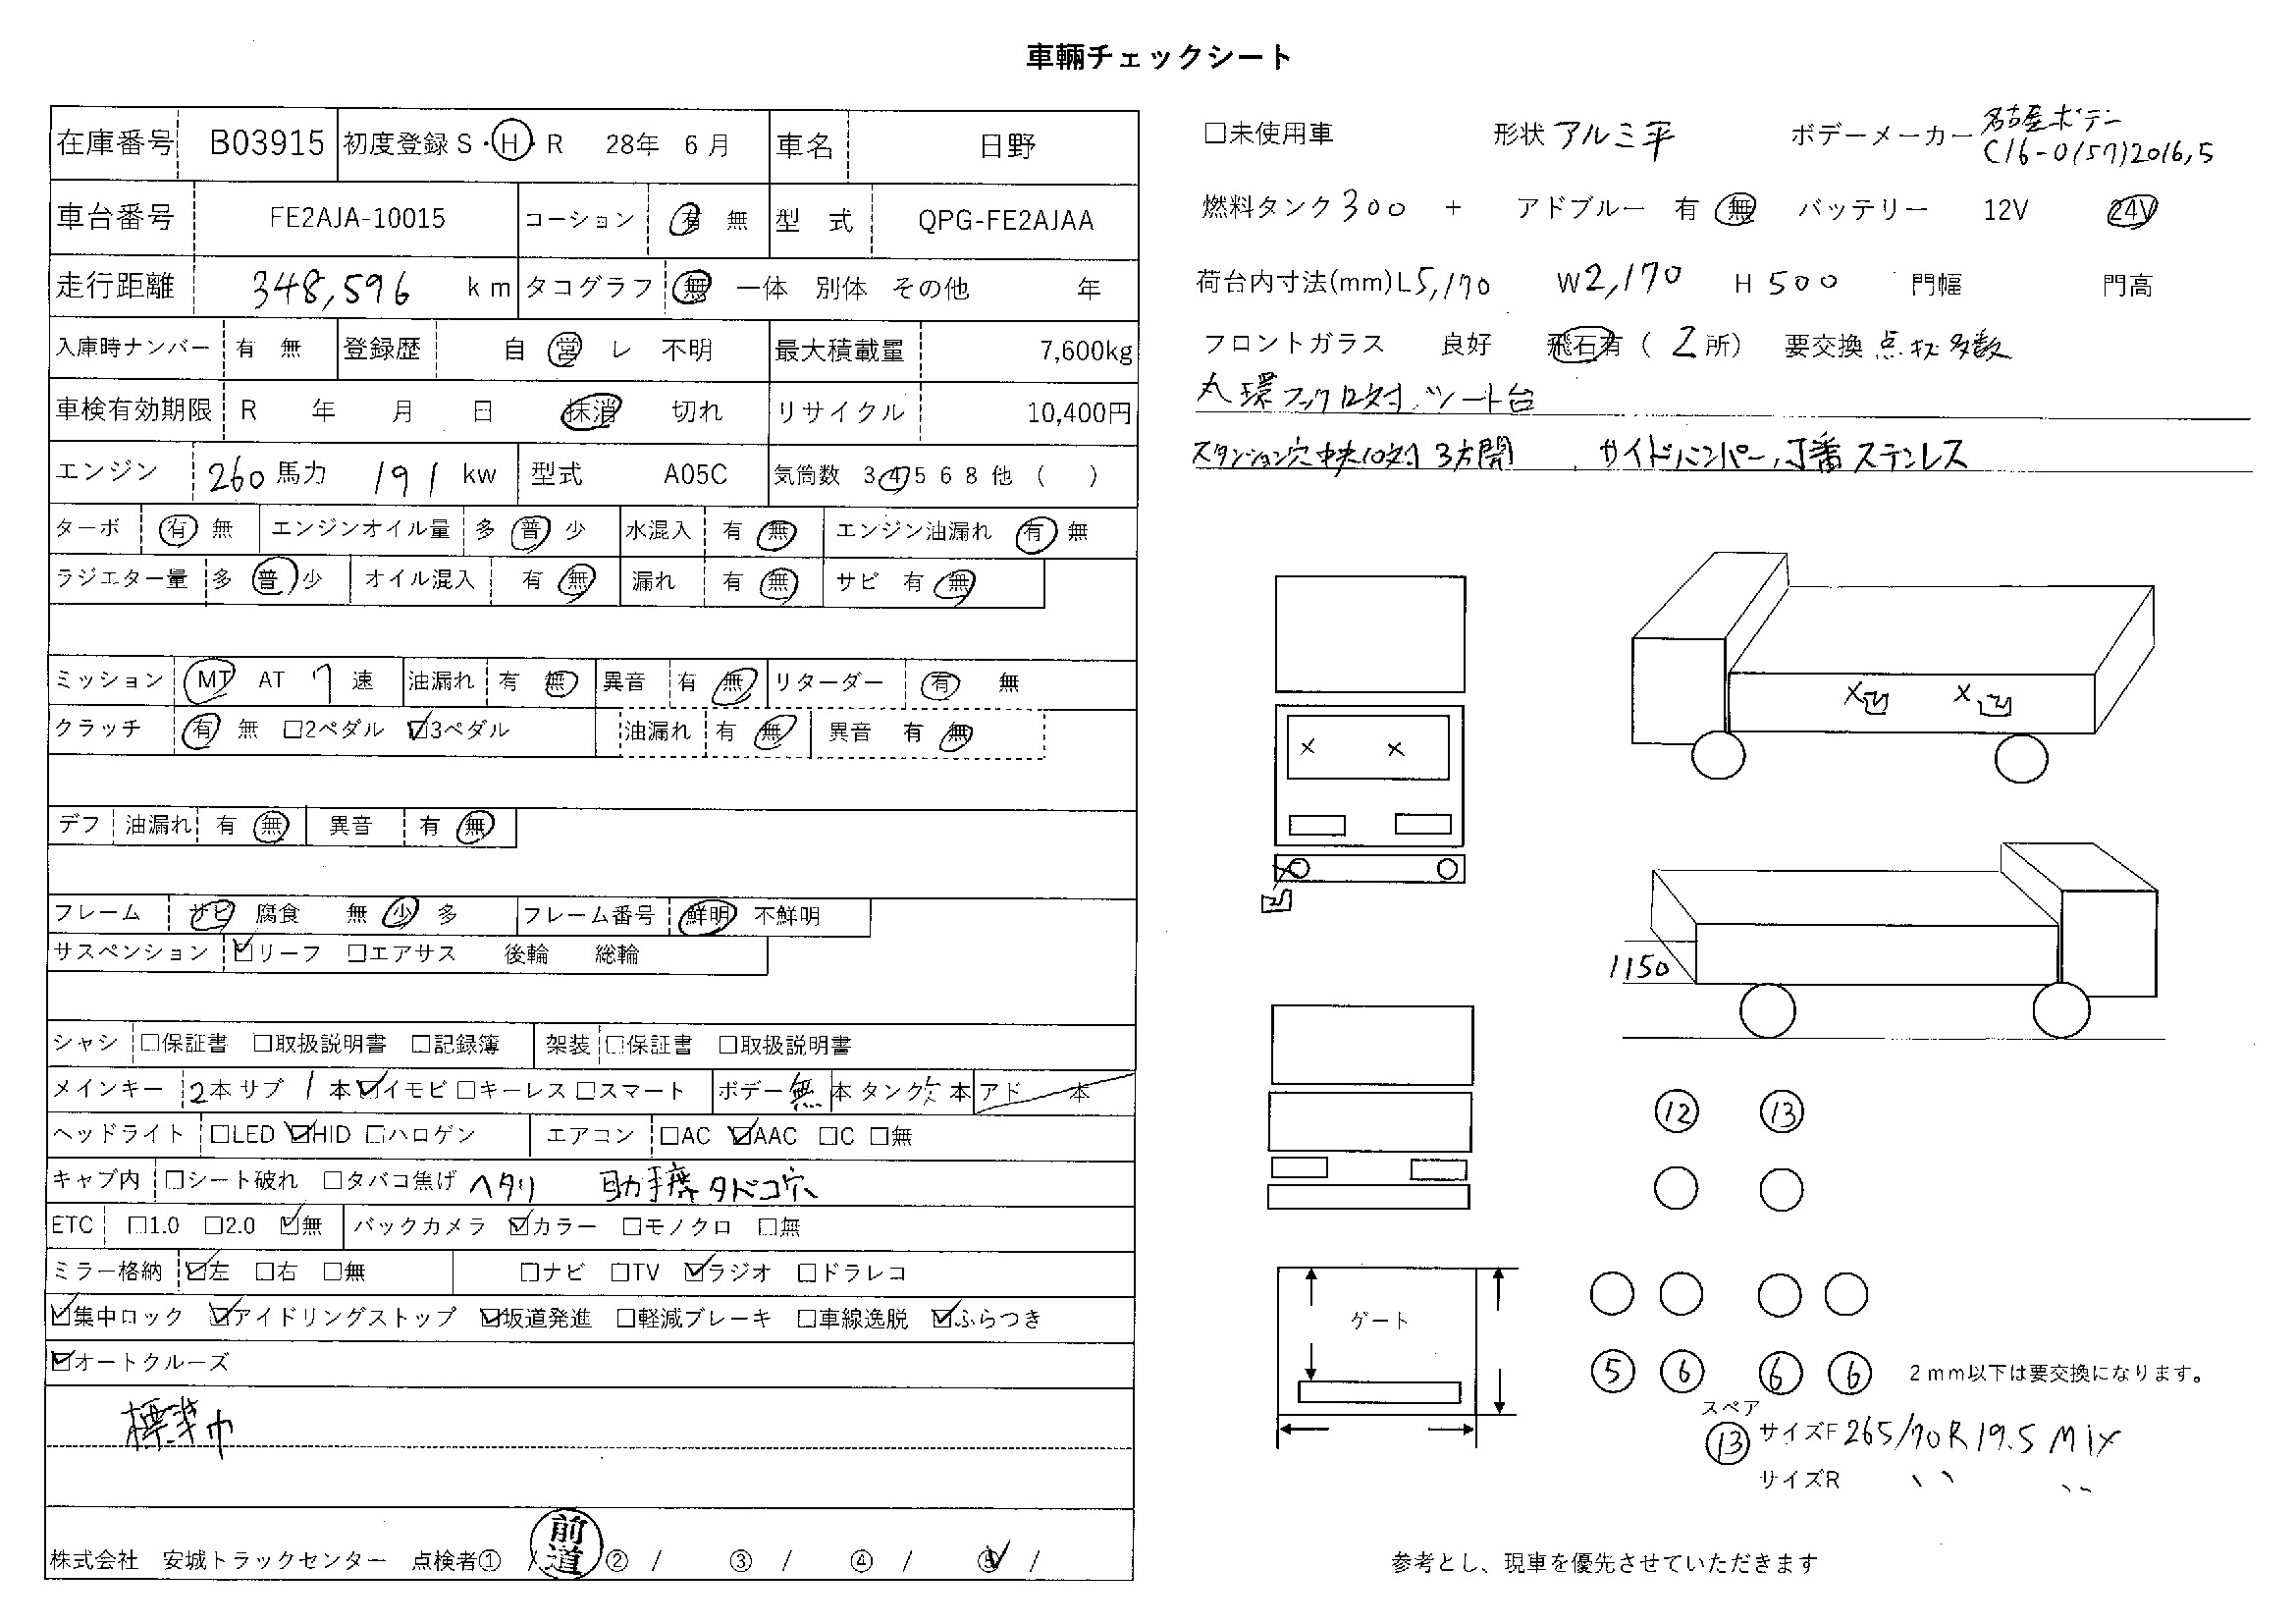 車輛チェックシート
在庫番号 B03915 初度登録 S・H・R 28年 6月 車名 日野
車台番号 FE2AJA-10015 コーション 有 無 型 式 QPG-FE2AJAA
走行距離 348,596 km タコグラフ 無 一体 別体 その他 年
入庫時ナンバー 有 無 登録歴 自 営 レ 不明 最大積載量 7,600kg
車検有効期限 R 年 月 日 抹消 切れ リサイクル 10,400円
エンジン 260馬力 191 kw 型式 A05C 気筒数 3 4 5 6 8 他 ( )
ターボ 有 無 エンジンオイル量 多 普 少 水混入 有 無 エンジン油漏れ 有 無
ラジエター量 多 普 少 オイル混入 有 無 漏れ 有 無 サビ 有 無
ミッション MT AT 7 速 油漏れ 有 無 異音 有 無 リターダー 有 無
クラッチ 有 無 □2ペダル ☑3ペダル 油漏れ 有 無 異音 有 無
デフ 油漏れ 有 無 異音 有 無
フレーム サビ 腐食 無 少 多 フレーム番号 鮮明 不鮮明
サスペンション ☑リーフ □エアサス 後輪 総輪
シャシ □保証書 □取扱説明書 □記録簿 架装 □保証書 □取扱説明書
メインキー 2本 サブ 1本 ☑イモビ □キーレス □スマート ボデー 無 本 タンク 本 アド 本
ヘッドライト □LED ☑HID □ハロゲン エアコン □AC ☑AAC □C □無
キャブ内 □シート破れ □タバコ焦げ ヘタリ 助手席タバコ穴
ETC □1.0 □2.0 ☑無 バックカメラ ☑カラー □モノクロ □無
ミラー格納 ☑左 □右 □無 □ナビ □TV ☑ラジオ □ドラレコ
☑集中ロック ☑アイドリングストップ ☑坂道発進 □軽減ブレーキ □車線逸脱 ☑ふらつき
☑オートクルーズ
標準巾
株式会社 安城トラックセンター 点検者① / 前道 ② / ③ / ④ / ⑤ /
□未使用車 形状 アルミ平 ボデーメーカー 名古屋ボデー
C16-0(57)2016,5
燃料タンク 300 + アドブルー 有 無 バッテリー 12V 24V
荷台内寸法(mm) L5,170 W2,170 H 500 門幅 門高
フロントガラス 良好 飛石有 ( 2 所) 要交換 点状多数
丸環フック12対 シート台
スタンション穴中央10対 3方開 サイドバンパー,丁番ステンレス
× 凹 × 凹
× ×
× 凹
1150
12 13
ゲート
5 6 6 6 2mm以下は要交換になります。
スペア
13 サイズF 265/70R19.5 MIX
サイズR 〃 〃
参考とし、現車を優先させていただきます